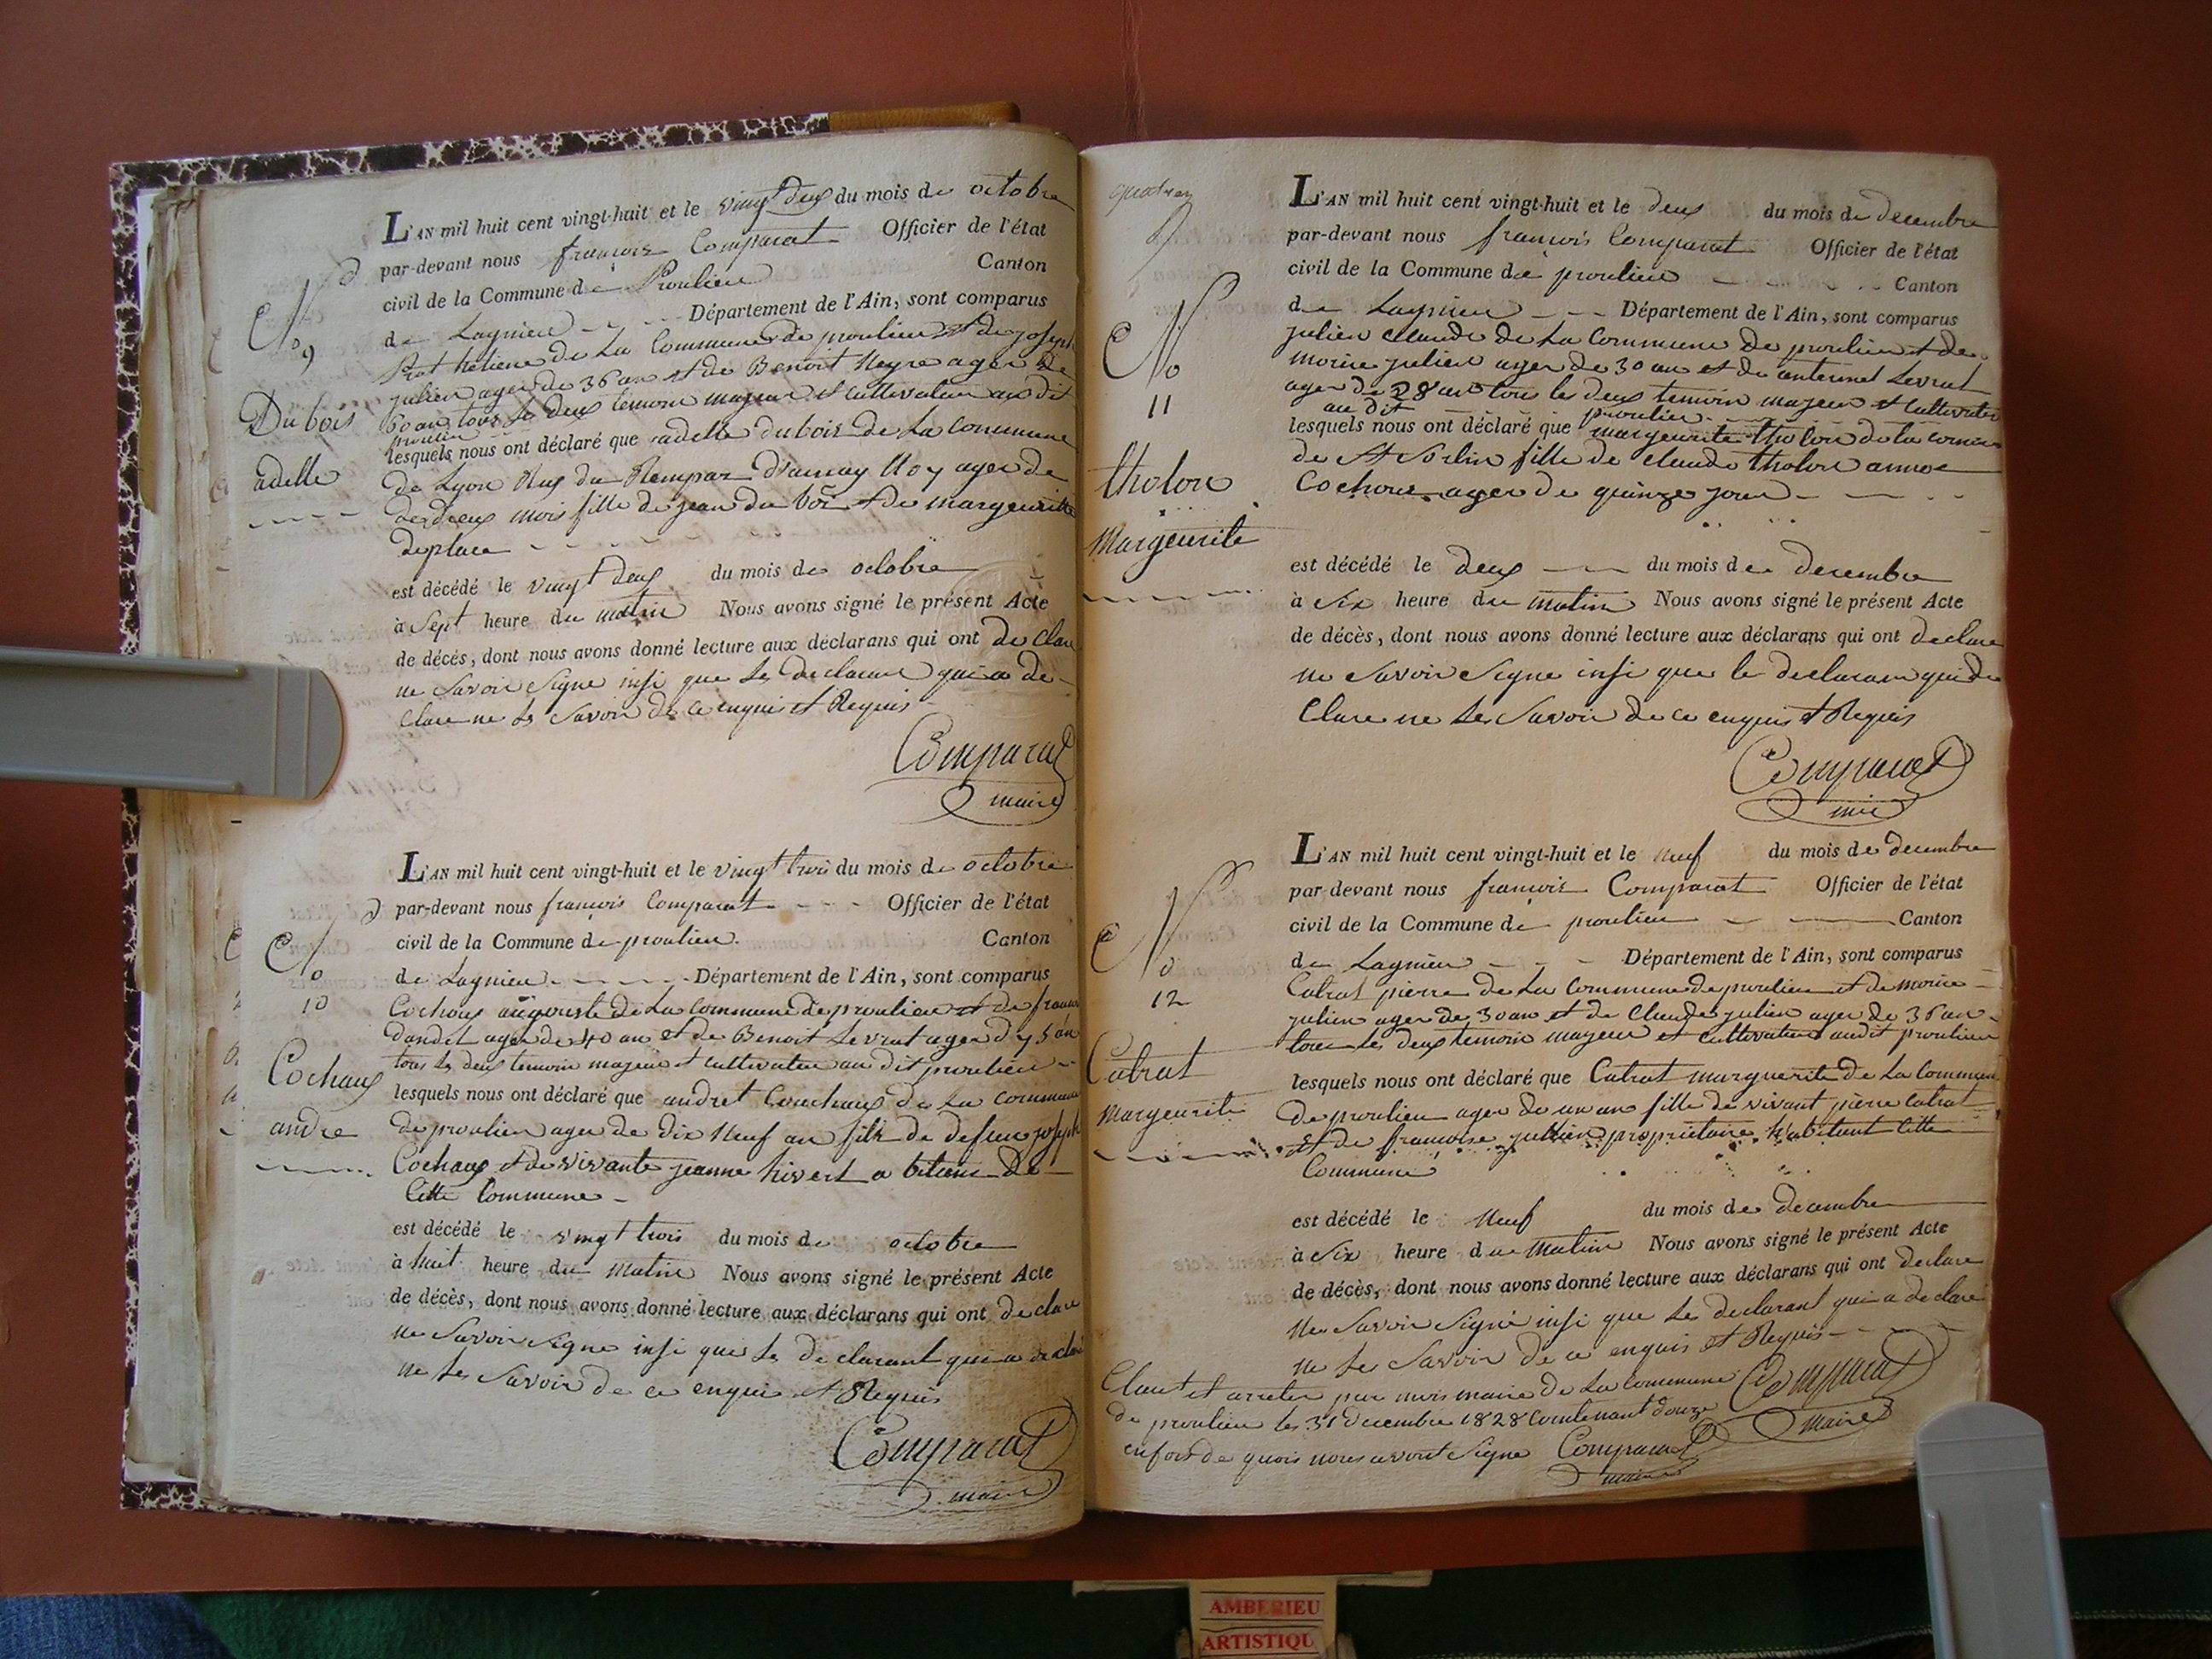 L'AN mil huit cent vingt-huit et le vingt deux du mois de octobre
par-devant nous françois Comparat Officier de l'état
civil de la Commune de Proulieu Canton
de Lagnieu Département de l'Ain, sont comparus
de La Commune de proulieu et de joseph
julien ager de 36 an et de Benoit Neyre ager de
60 an tous les deux temoin majeur et cultivateur au dit
proulieu
lesquels nous ont déclaré que adelle dubois de La Commune
de Lyon Rue du Rempar d'ainay ager de
deux mois fille de jean du bois et de margeuritte
deplace
est décédé le vingt deux du mois de octobre
à Sept heure du matin Nous avons signé le présent Acte
de décès, dont nous avons donné lecture aux déclarans qui ont declare
ne Savoir Signe insi que les declarant qui a de
Clare ne Le Savoir de ce enquis et Requis
Comparat
maire
No
9
Dubois
adelle
L'AN mil huit cent vingt-huit et le vingt trois du mois de octobre
par-devant nous françois Comparat Officier de l'état
civil de la Commune de proulieu Canton
de Lagnieu Département de l'Ain, sont comparus
Cochoux augouste de La Commune de proulieu et de francois
dandel ager de 40 an et de Benoit Levrat ager d 45 an
tous les deux temoin majeur et cultivateur au dit proulieu
lesquels nous ont déclaré que andret Couchoux de La commune
de proulieu ager de dix Neuf an fils de defunt joseph
Cochoux et de vivante jeanne hivert a bitans de
Cette Commune
est décédé le vingt trois du mois de octobre
à huit heure du matin Nous avons signé le présent Acte
de décès, dont nous avons donné lecture aux déclarans qui ont declare
ne Savoir Signe insi que les declarant qui a declare
ne Le Savoir de ce enquis et Requis
Comparat
maire
No
10
Cochoux
andre
L'AN mil huit cent vingt-huit et le deux du mois de decembre
par-devant nous françois Comparat Officier de l'état
civil de la Commune de proulieu Canton
de Lagnieu Département de l'Ain, sont comparus
julien claude de La Commune de proulieu et de
morice julien ager de 30 an et de antermet Levrat
ager de 28 an tous les deux temoin majeur et Cultivateur
au dit proulieu
lesquels nous ont déclaré que margeurite tholon de la comune
de St Sorlin fille de claude tholon anne
Cochoux ager de quinze jour
est décédé le deux du mois de decembre
à Six heure du matin Nous avons signé le présent Acte
de décès, dont nous avons donné lecture aux déclarans qui ont declare
ne Savoir Signe insi que le declarant qui de
Clare ne Les Savoir de ce enquis et Requis
Comparat
maire
No
11
tholon
Margeurite
L'AN mil huit cent vingt-huit et le neuf du mois de decembre
par-devant nous françois Comparat Officier de l'état
civil de la Commune de proulieu Canton
de Lagnieu Département de l'Ain, sont comparus
Catrat pierre de La Commune de proulieu et de morice
julien ager de 30 an et de Claude julien ager de 36 an
tous les deux temoin majeur et Cultivateur audit proulieu
lesquels nous ont déclaré que Catrat marguerite de La Commune
de proulieu ager de un an fille de vivant pierre Catrat
et de francoise jullien propriétaire habitant Cette
Commune
est décédé le Neuf du mois de decembre
à Six heure du matin Nous avons signé le présent Acte
de décès, dont nous avons donné lecture aux déclarans qui ont declare
ne Savoir Signé insi que Les declarant qui a declare
ne Le Savoir de ce enquis et Requis
Comparat
maire
No
12
Catrat
Margeurite
Claut et arreter par nous maire de La Commune
de proulieu les 31 decembre 1828 Contenant douze
enfois de quois nous avont Signe Comparat
maire
AMBERIEU
ARTISTIQU